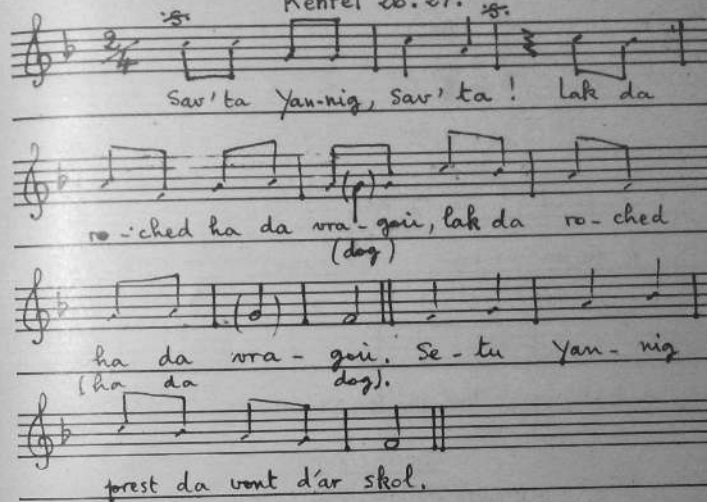 Kentel 26.27.
2/4
Sav'ta Yan-nig, Sav' ta ! Lak da
ro-ched ha da vra-goù, lak da ro-ched
(dog)
ha da vra-goù. Se-tu Yan-nig
(ha da dog).
prest da vont d'ar skol.